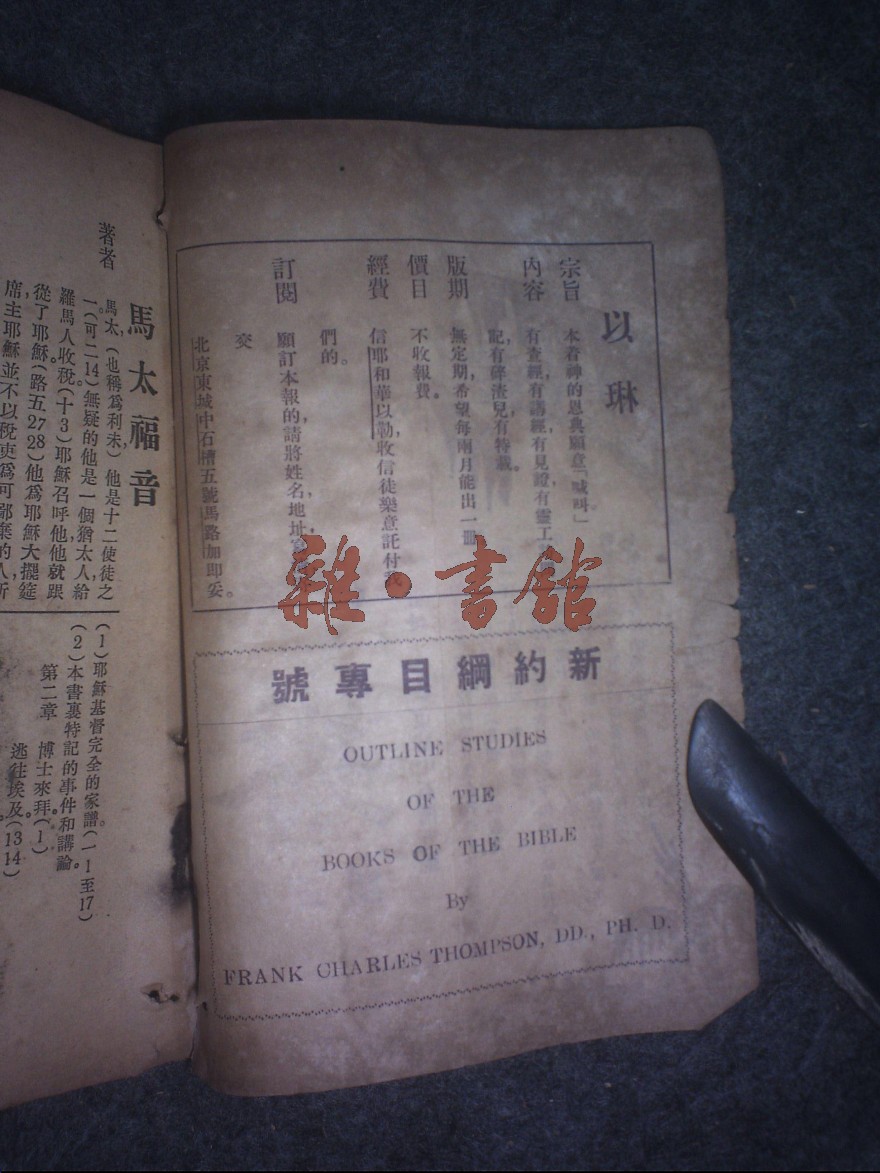 以琳
宗旨 本着神的恩典願意「喊叫」
內容 有查經,有講經,有見證,有靈工
記,有碎渣兒,有特載。
版期 無定期,希望每兩月能出一冊
價目 不收報費。
經費 信耶和華以勒,收信徒樂意託付我
們的。
訂閱 願訂本報的,請將姓名,地址,
交
北京東城中石槽五號馬路加即妥。
雜·書館
新約綱目專號
OUTLINE STUDIES
OF THE
BOOKS OF THE BIBLE
By
FRANK CHARLES THOMPSON, DD., PH. D.
馬太福音
著者 馬太,(也稱爲利未)他是十二使徒之
一。(可二14)無疑的他是一個猶太人,給
羅馬人收稅(十3)耶穌召呼他,他就跟
從了耶穌。(路五27 28)他爲耶穌大擺筵
席,主耶穌並不以稅吏爲可鄙棄的人,所
(1)耶穌基督完全的家譜。(一1至17)
(2)本書裏特記的事件和講論。
第二章 博士來拜。(1)
逃往埃及。(13 14)